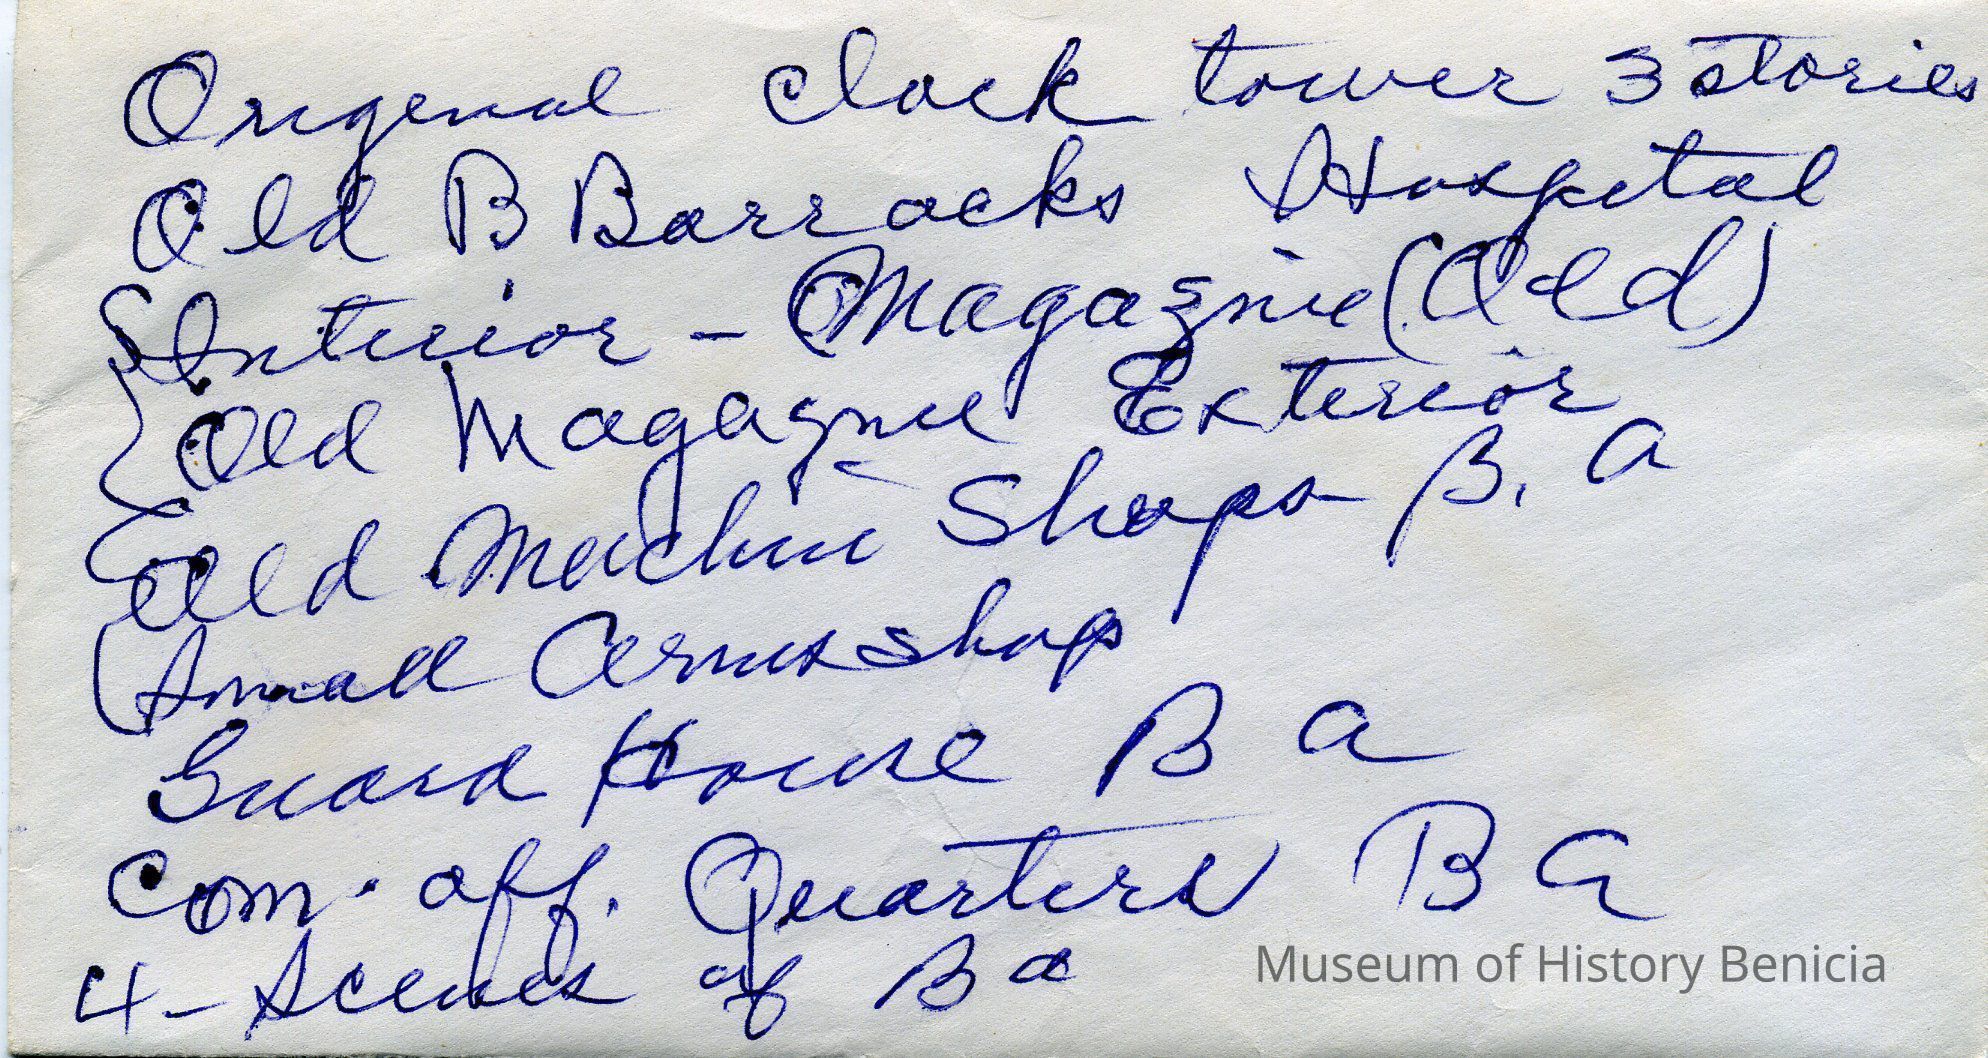 Original clock tower 3 stories
Old B Barracks Hospital
Interior - Magazine (Old)
Old Magazine Exterior
Old Machine Shops B. A
Small Arms shop
Guard House B A
Com. off. Quarters B A
4 - Scenes of B a
Museum of History Benicia